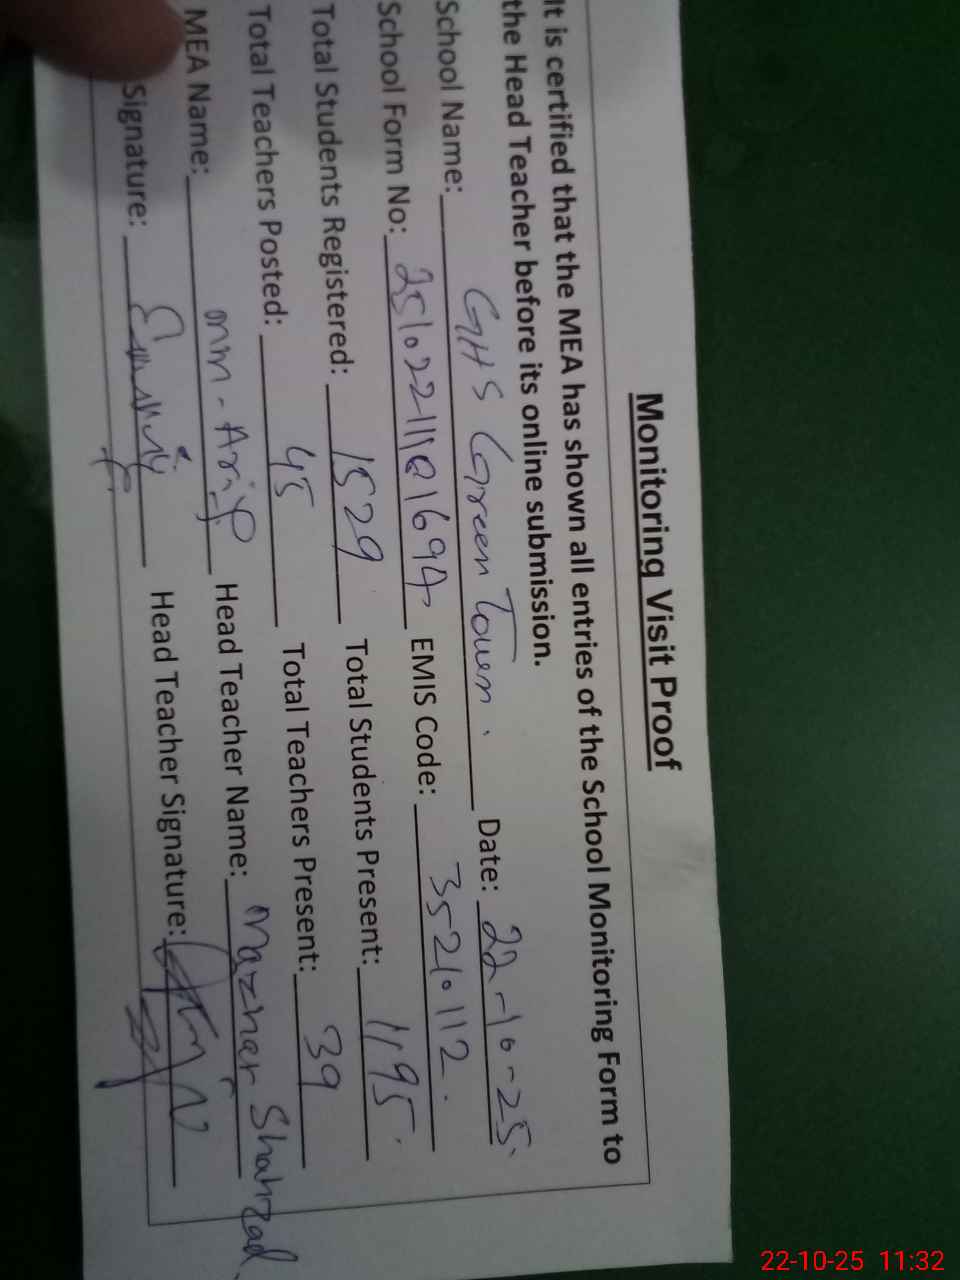 Monitoring Visit Proof
It is certified that the MEA has shown all entries of the School Monitoring Form to
the Head Teacher before its online submission.
School Name: GHS Green Town. Date: 22-10-25.
School Form No: 251022111101694 EMIS Code: 35210112.
Total Students Registered: 1529 Total Students Present: 1195.
Total Teachers Posted: 45 Total Teachers Present: 39
MEA Name: mm-Arif Head Teacher Name: Mazhar Shahzad
Signature: Head Teacher Signature:
22-10-25 11:32